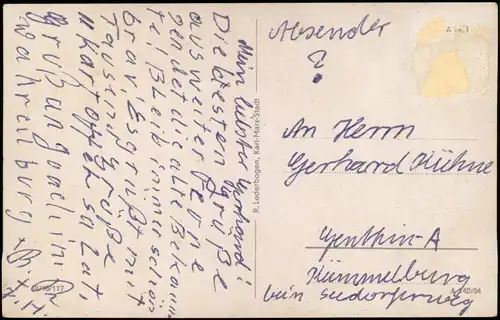 Mein lieber Gerhard!
Die besten Grüße
aus weiter Ferne
sendet die alte Bekann
te! Bleib immer schön
brav, es grüßt mit
Tausend Grüße
u Kartoffelsalat,
Gruß an Joachim
Wahrenburg
Absender
?
An Herrn
Gerhard Kühne
Genthin-A
Hümmelburg
beim Seedorferweg
R. Lederbogen, Karl-Marx-Stadt
III/18/117